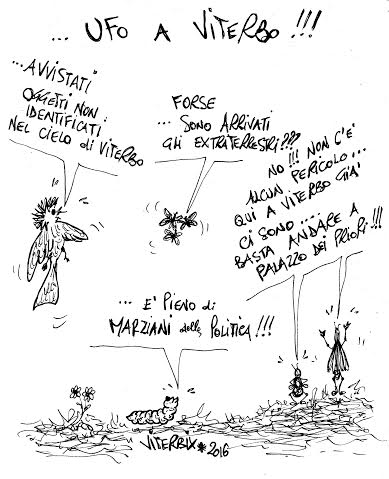 ... UFO A VITERBO !!!
... AVVISTATI
OGGETTI NON
IDENTIFICATI
NEL CIELO di VITERBO
FORSE
... SONO ARRIVATI
GLI EXTRATERRESTRI???
NO!!! NON C'E'
ALCUN PERICOLO...
QUI A VITERBO GIÀ
CI SONO...
BASTA ANDARE A
PALAZZO DEI PRIORI!!!
... E' PIENO di
MARZIANI della POLITICA!!!
VITERBIX * 2016